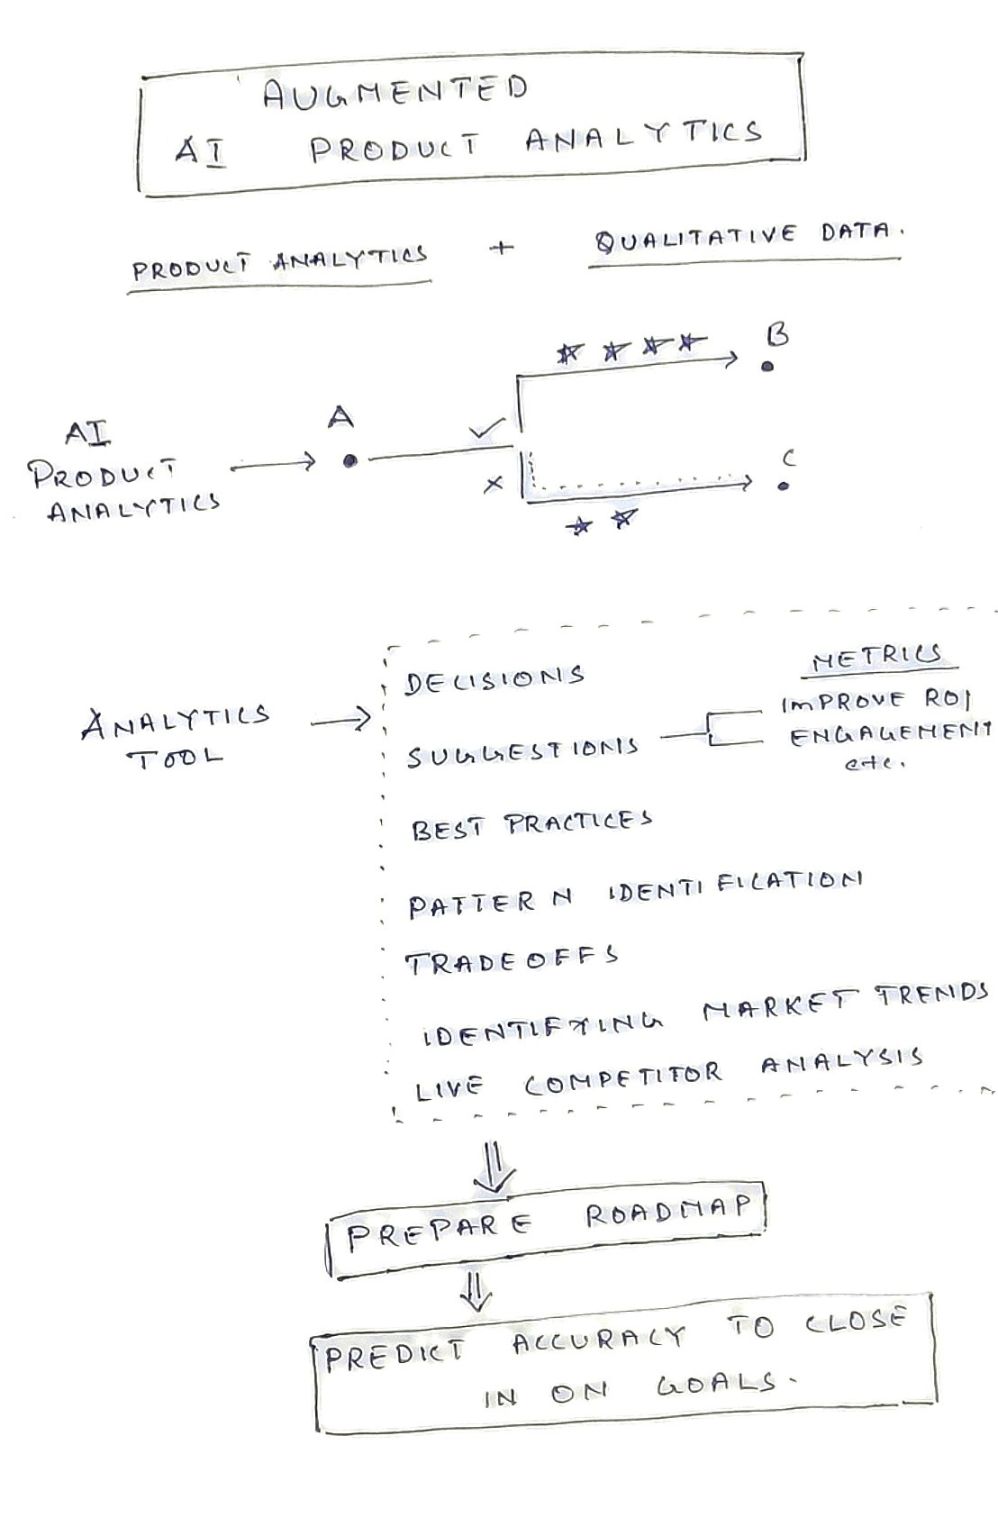 AUGMENTED
AI PRODUCT ANALYTICS
PRODUCT ANALYTICS + QUALITATIVE DATA.
B
A
AI
PRODUCT
ANALYTICS
C
DECISIONS
METRICS
IMPROVE ROI
ANALYTICS
TOOL
SUGGESTIONS
ENGAGEMENT
etc.
BEST PRACTICES
PATTERN IDENTIFICATION
TRADEOFFS
IDENTIFYING MARKET TRENDS
LIVE COMPETITOR ANALYSIS
PREPARE ROADMAP
PREDICT ACCURACY TO CLOSE
IN ON GOALS.